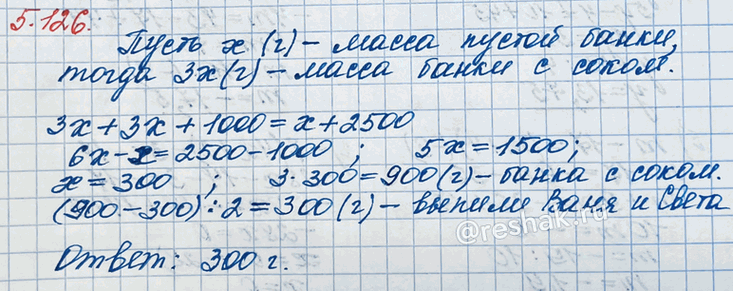 5.126.
Пусть x (г) – масса пустой банки,
тогда 3x (г) – масса банки с соком.
3x + 3x + 1000 = x + 2500
6x - x = 2500 - 1000 ; 5x = 1500;
x = 300 ; 3·300 = 900 (г) – банка с соком.
(900 - 300) : 2 = 300 (г) – выпили Ваня и Света
@reshak.ru
Ответ: 300 г.